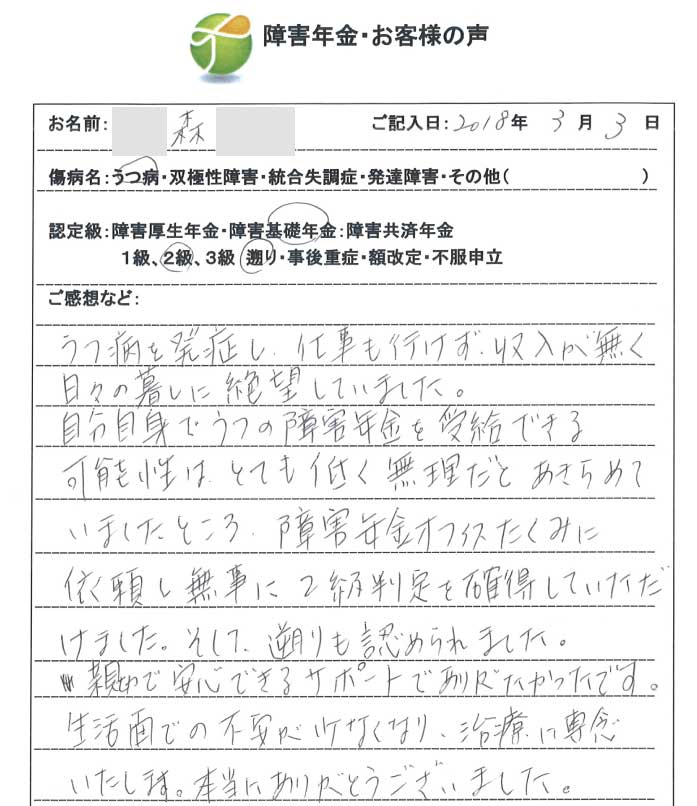 障害年金・お客様の声
お名前: 森 ご記入日:2018年 3月 3日
傷病名:うつ病・双極性障害・統合失調症・発達障害・その他( )
認定級:障害厚生年金・障害基礎年金:障害共済年金
1級、2級、3級 遡り・事後重症・額改定・不服申立
ご感想など:
うつ病を発症し、仕事も行けず、収入が無く
日々の暮しに絶望していました。
自分自身でうつの障害年金を受給できる
可能性は、とても低く無理だとあきらめて
いましたところ、障害年金オフィスたくみに
依頼し無事に2級判定を確得していただ
けました。そして、遡りも認められました。
親切で安心できるサポートでありがたかったです。
生活面での不安が少なくなり、治療に専念
いたします。本当にありがとうございました。